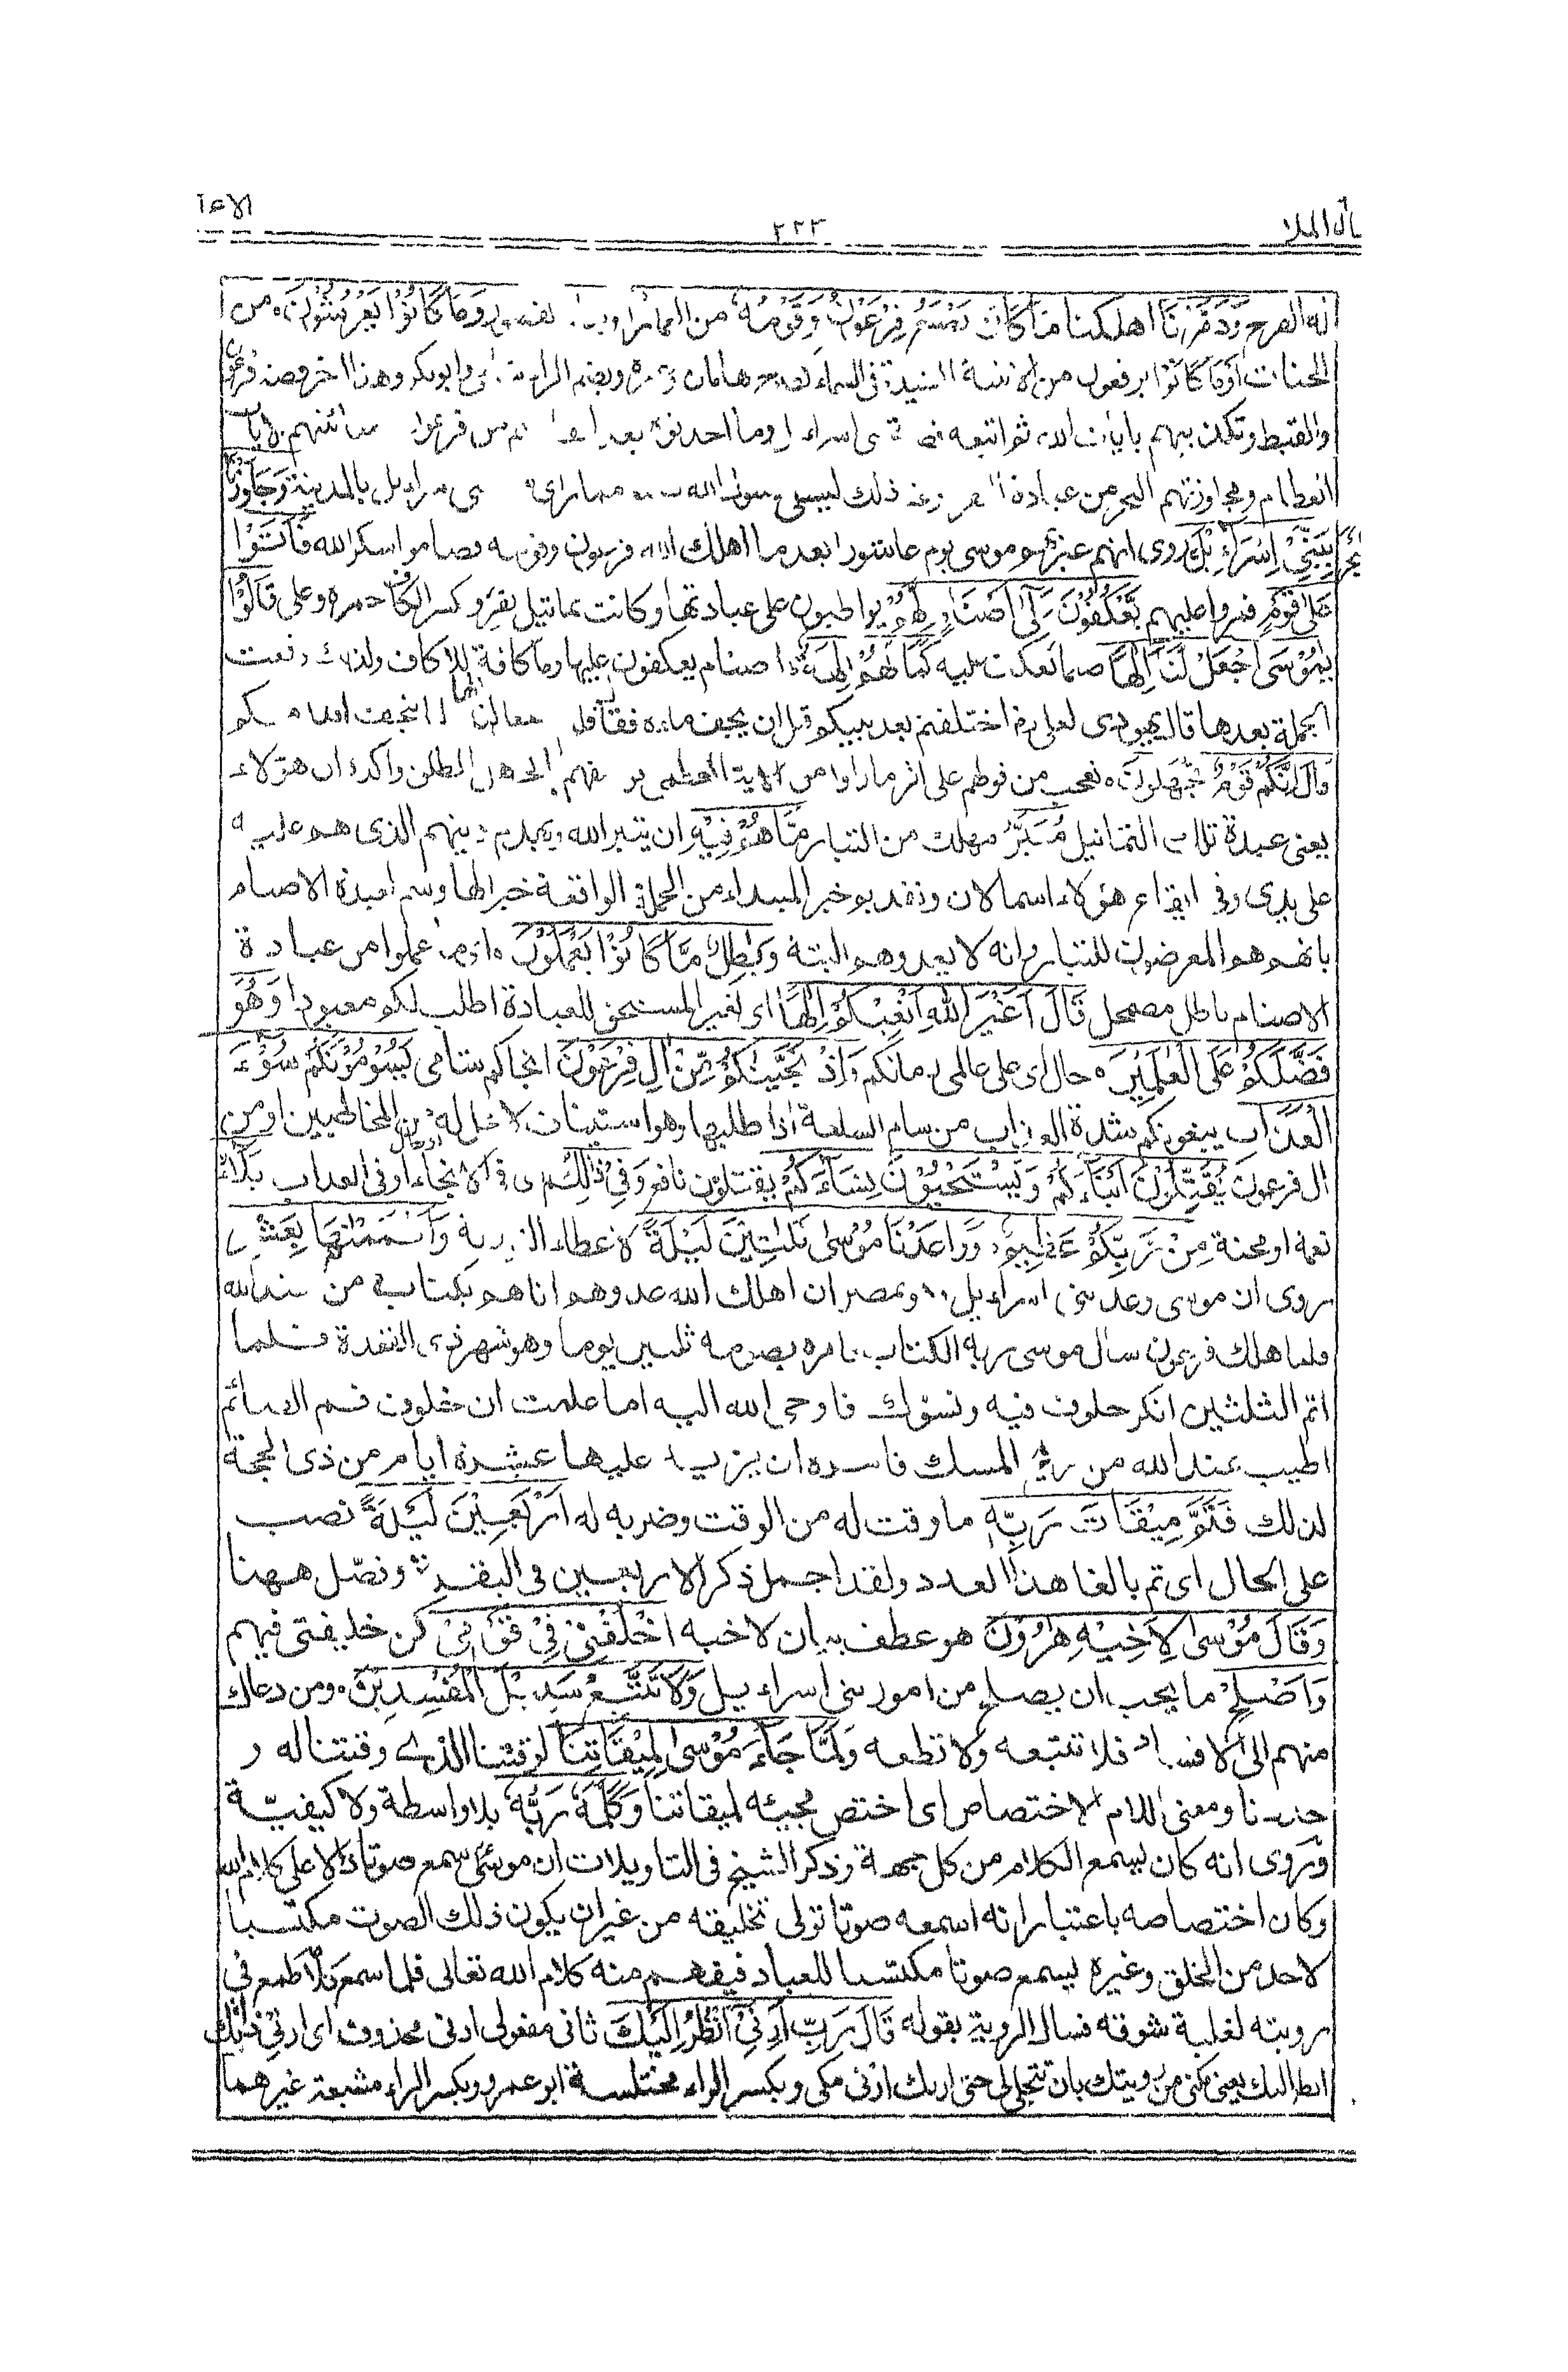 قال الملا ٢٢٣ الاعرا
له الفرج وَدَمَّرْنَا اهلكنا مَا كَانَ يَصْنَعُ فِرْعَوْنُ وَقَوْمُهُ من العمارات وَمَا كَانُوْا يَعْرِشُوْنَ من
الجنات اَوْمَا كَانُوْا يرفعون من الابنية المشيدة فى السماء كصرح هامان وغيره وبضم الراء شامى وابوبكر وهذا اخر قصة فرعون
والقبط وتكذيبهم بايات الله ثم اتبعه قصة بنى اسراءيل وما احدثوه بعد من فرعون
العظام ومجاوزتهم البحر من عبادة البقر وغير ذلك ليسلى رسول الله مما راى من بنى اسراءيل بالمدينة وَجَاوَزْنَا
بِبَنِيْ اِسْرَاءِيْلَ الْبَحْرَ روى انهم عبر بهم موسى يوم عاشورا بعد ما اهلك الله فرعون وقومه فصاموا شكر الله فَاَتَوْا
عَلٰى قَوْمٍ فمروا عليهم يَّعْكُفُوْنَ عَلٰى اَصْنَامٍ لَّهُمْ يواظبون على عبادتها وكانت تماثيل بقر وبكسر الكاف حمزة وعلى قَالُوْا
يٰمُوْسَى اجْعَلْ لَّنَا اِلٰهًا صنما نعكف عليه كَمَا لَهُمْ اٰلِهَةٌ اصنام يعكفون عليها وما كافة للكاف ولذلك وقعت
الجملة بعدها قال يهودى لعلى رض اختلفتم بعد نبيكم قبل ان يجف ماءه فقال قلتم اجعل لنا الها ولم تجف اقدامكم
قَالَ اِنَّكُمْ قَوْمٌ تَجْهَلُوْنَ تعجب من قولهم على اثر ما راوا من الاية العظمى فوصفهم بالجهل المطلق واكده ان هؤلاء
يعنى عبدة تلك التماثيل مُتَبَّرٌ مهلك من التبار مَّا هُمْ فِيْهِ اى يتبر الله ويهدم دينهم الذى هم عليه
على يدى وفى ايقاع هؤلاء اسما لان وتقديم خبر المبتداء من الجملة الواقعة خبرا لها وسم لعبدة الاصنام
بانهم هم المعرضون للتبار وانه لا يعدوهم البتة وَبَاطِلٌ مَّا كَانُوْا يَعْمَلُوْنَ اى ما عملوا من عبادة
الاصنام باطل مضمحل قَالَ اَغَيْرَ اللهِ اَبْغِيْكُمْ اِلٰهًا اى اغير المستحق للعبادة اطلب لكم معبودا وَهُوَ
فَضَّلَكُمْ عَلَى الْعٰلَمِيْنَ حال اى على عالمى زمانكم وَاِذْ نَجَّيْنٰكُمْ مِّنْ اٰلِ فِرْعَوْنَ انجاكم شامى يَسُوْمُوْنَكُمْ سُوْءَ
الْعَذَابِ يبغونكم شدة العذاب من سام السلعة اذا طلبها وهو استيناف لا محل له او حال من المخاطبين او من
ال فرعون يُقَتِّلُوْنَ اَبْنَاءَكُمْ وَيَسْتَحْيُوْنَ نِسَاءَكُمْ يقتلون نافع وَفِيْ ذٰلِكُمْ اى فى الانجاء او فى العذاب بَلَاءٌ
نعمة او محنة مِنْ رَّبِّكُمْ عَظِيْمٌ وَوٰعَدْنَا مُوْسٰى ثَلٰثِيْنَ لَيْلَةً لاعطاء التورية وَاَتْمَمْنٰهَا بِعَشْرٍ
روى ان موسى وعد بنى اسراءيل وهو بمصر ان اهلك الله عدوهم اتاهم بكتاب من عند الله
فلما هلك فرعون سال موسى ربه الكتاب فامره بصوم ثلثين يوما وهو شهر ذى القعدة فلما
اتم الثلثين انكر خلوف فيه وتسوّك فاوحى الله اليه اما علمت ان خلوف فم الصائم
اطيب عند الله من ريح المسك فامره ان يزيد عليها عشرة ايام من ذى الحجة
لذلك فَتَمَّ مِيْقَاتُ رَبِّهٖ ما وقت له من الوقت وضربه له اَرْبَعِيْنَ لَيْلَةً نصب
على الحال اى تم بالغا هذا العدد ولقد اجمل ذكر الاربعين فى البقرة وفصّل ههنا
وَقَالَ مُوْسٰى لِاَخِيْهِ هٰرُوْنَ هو عطف بيان لاخيه اخْلُفْنِيْ فِيْ قَوْمِيْ كن خليفتى فيهم
وَاَصْلِحْ ما يجب ان يصلح من امور بنى اسراءيل وَلَا تَتَّبِعْ سَبِيْلَ الْمُفْسِدِيْنَ ومن دعاك
منهم الى الافساد فلا تتبعه ولا تطعه وَلَمَّا جَاءَ مُوْسٰى لِمِيْقَاتِنَا لوقتنا الذى وقتنا له و
حددنا ومعنى اللام الاختصاص اى اختص مجيئه لميقاتنا وَكَلَّمَهٗ رَبُّهٗ بلا واسطة ولا كيفيّة
وروى انه كان يسمع الكلام من كل جهة وذكر الشيخ فى التاويلات ان موسى سمع صوتا دالا على كلام الله
وكان اختصاصه باعتبار انه اسمعه صوتا تولى تخليقه من غير ان يكون ذلك الصوت مكتسبا
لاحد من الخلق وغيره يسمع صوتا مكتسبا للعباد فيفهم منه كلام الله تعالى فلما سمع كلامه طمع فى
رويته لغلبة شوقه فسال الروية بقوله قَالَ رَبِّ اَرِنِيْ اَنْظُرْ اِلَيْكَ ثانى مفعولى ارنى محذوف اى ارنى ذاتك
انظر اليك يعنى مكنى من رويتك بان تتجلى لى حتى اريك ارْنى مكى وبكسر الراء مختلسة ابو عمرو وبكسر الراء مشبعة غيرهما